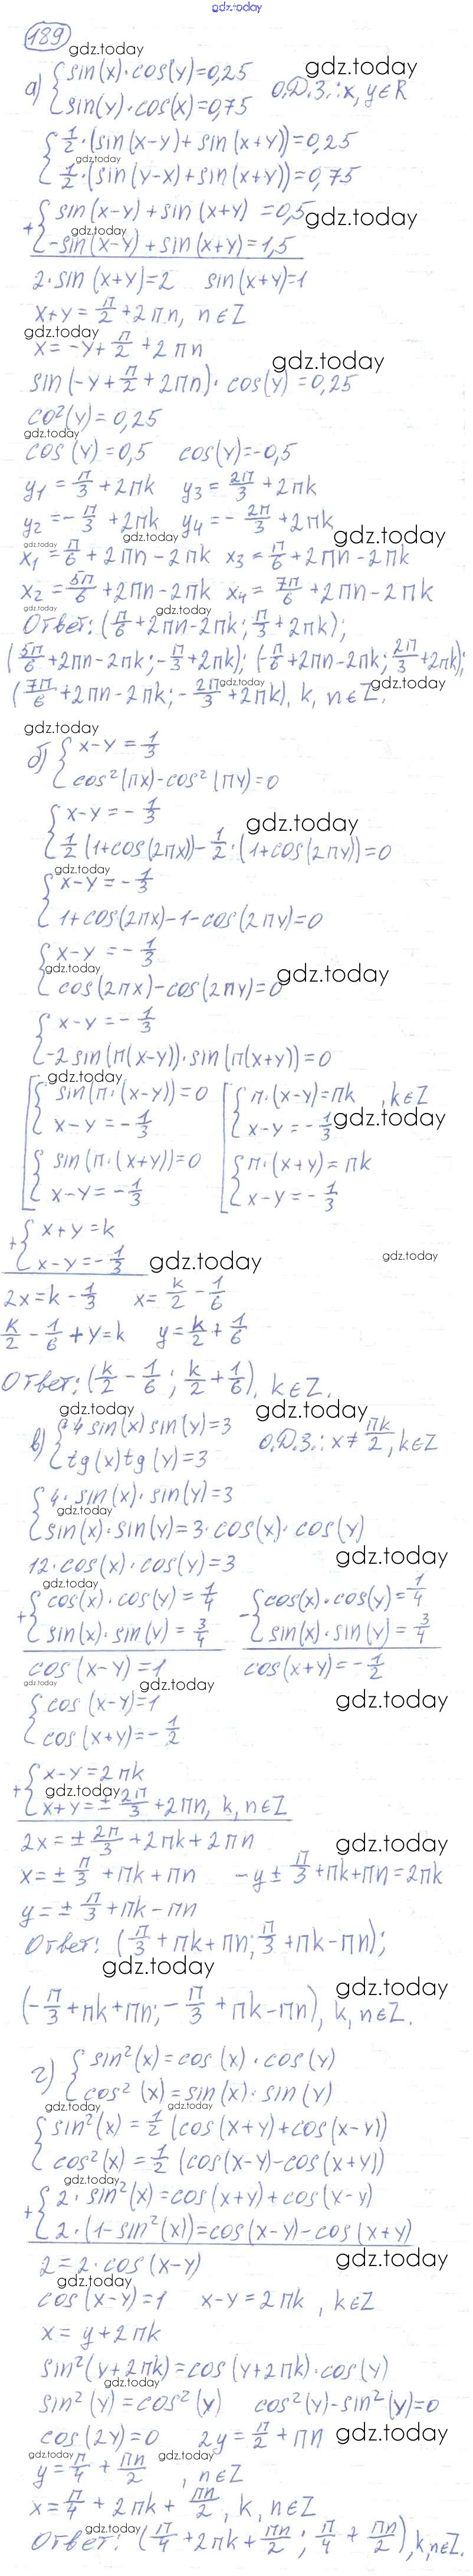 gdz.today
189
gdz.today
а) { sin(x)·cos(y)=0,25
sin(y)·cos(x)=0,75
gdz.today
О.Д.З.: x, y∈R
{ 1/2·(sin(x-y)+sin(x+y))=0,25
gdz.today
1/2·(sin(y-x)+sin(x+y))=0,75
+{ sin(x-y)+sin(x+y)=0,5
gdz.today
gdz.today
-sin(x-y)+sin(x+y)=1,5
2·sin(x+y)=2 sin(x+y)=1
x+y=π/2+2πn, n∈Z
gdz.today
x=-y+π/2+2πn
gdz.today
sin(-y+π/2+2πn)·cos(y)=0,25
co²(y)=0,25
gdz.today
cos(y)=0,5 cos(y)=-0,5
y₁=π/3+2πk y₃=2π/3+2πk
y₂=-π/3+2πk y₄=-2π/3+2πk
gdz.today
gdz.today
gdz.today
x₁=π/6+2πn-2πk x₃=π/6+2πn-2πk
x₂=5π/6+2πn-2πk x₄=7π/6+2πn-2πk
gdz.today
gdz.today
Ответ: (π/6+2πn-2πk; π/3+2πk);
(5π/6+2πn-2πk; -π/3+2πk); (-π/6+2πn-2πk; 2π/3+2πk);
gdz.today
gdz.today
(7π/6+2πn-2πk; -2π/3+2πk), k, n∈Z.
gdz.today
б) { x-y=1/3
cos²(πx)-cos²(πy)=0
{ x-y=-1/3
gdz.today
1/2(1+cos(2πx))-1/2·(1+cos(2πy))=0
gdz.today
{ x-y=-1/3
1+cos(2πx)-1-cos(2πy)=0
{ x-y=-1/3
gdz.today
gdz.today
cos(2πx)-cos(2πy)=0
{ x-y=-1/3
-2sin(π(x-y))·sin(π(x+y))=0
gdz.today
[ { sin(π·(x-y))=0 [ { π·(x-y)=πk, k∈Z
x-y=-1/3 x-y=-1/3
gdz.today
{ sin(π·(x+y))=0 { π·(x+y)=πk
x-y=-1/3 x-y=-1/3
+{ x+y=k
x-y=-1/3
gdz.today
gdz.today
2x=k-1/3 x=k/2-1/6
k/2-1/6+y=k y=k/2+1/6
Ответ: (k/2-1/6; k/2+1/6), k∈Z.
gdz.today
gdz.today
в) { 4sin(x)sin(y)=3
tg(x)tg(y)=3
О.Д.З.: x≠πk/2, k∈Z
{ 4·sin(x)·sin(y)=3
gdz.today
sin(x)·sin(y)=3·cos(x)·cos(y)
12·cos(x)·cos(y)=3
gdz.today
gdz.today
+{ cos(x)·cos(y)=1/4 -{ cos(x)·cos(y)=1/4
sin(x)·sin(y)=3/4 sin(x)·sin(y)=3/4
cos(x-y)=1 cos(x+y)=-1/2
gdz.today
gdz.today
gdz.today
{ cos(x-y)=1
cos(x+y)=-1/2
+{ x-y=2πk
gdz.today
x+y=±2π/3+2πn, k,n∈Z
2x=±2π/3+2πk+2πn
gdz.today
x=±π/3+πk+πn -y±π/3+πk+πn=2πk
y=±π/3+πk-πn
gdz.today
Ответ: (π/3+πk+πn; π/3+πk-πn);
gdz.today
gdz.today
(-π/3+πk+πn; -π/3+πk-πn), k,n∈Z.
г) { sin²(x)=cos(x)·cos(y)
cos²(x)=sin(x)·sin(y)
gdz.today
gdz.today
{ sin²(x)=1/2(cos(x+y)+cos(x-y))
cos²(x)=1/2(cos(x-y)-cos(x+y))
gdz.today
+{ 2·sin²(x)=cos(x+y)+cos(x-y)
2·(1-sin²(x))=cos(x-y)-cos(x+y)
2=2·cos(x-y)
gdz.today
gdz.today
cos(x-y)=1 x-y=2πk, k∈Z
x=y+2πk
sin²(y+2πk)=cos(y+2πk)·cos(y)
gdz.today
sin²(y)=cos²(y) cos²(y)-sin²(y)=0
cos(2y)=0 2y=π/2+πn
gdz.today
gdz.today
gdz.today
y=π/4+πn/2, n∈Z
x=π/4+2πk+πn/2, k,n∈Z
gdz.today
Ответ: (π/4+2πk+πn/2; π/4+πn/2), k,n∈Z.